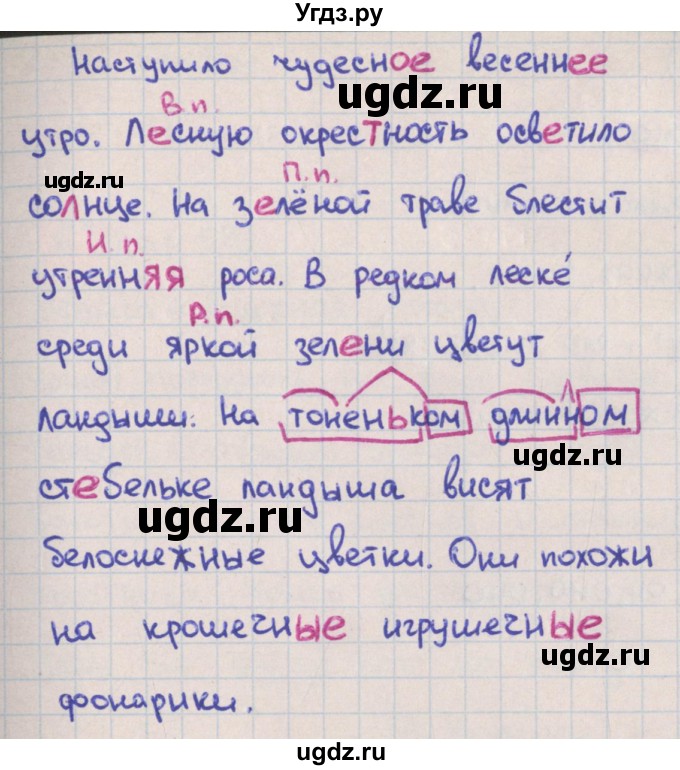 Угдз.ру
Наступило чудесное весеннее
ugdz.ru
В.п.
утро. Лесную окрестность осветило
ugdz.ru
П.п.
солнце. На зелёной траве блестит
И.п.
утренняя роса. В редком леске́
Р.п.
среди яркой зелени цветут
ландыши. На тоненьком длинном
ugdz.ru
стебельке ландыша висят
ugdz.ru
белоснежные цветки. Они похожи
на крошечные игрушечные
ugdz.ru
фонарики.
ugdz.ru